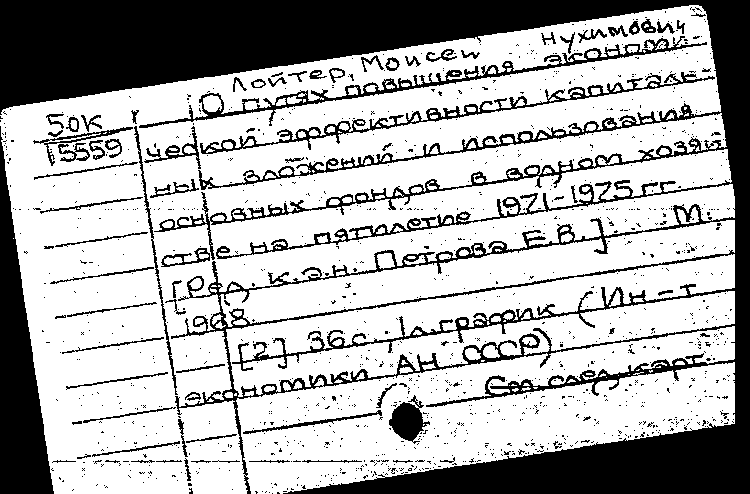 Лойтер, Моисей Нухимович
50К
15559
О путях повышения экономи-
ческой эффективности капиталь-
ных вложений и использования
основных фондов в водном хозяй
стве на пятилетие 1971-1975 гг.
[Ред. к.э.н. Петрова Е.В.] М.
1968.
[2], 36с., 1л.график (Ин-т
экономики АН СССР).
См. след. карт.